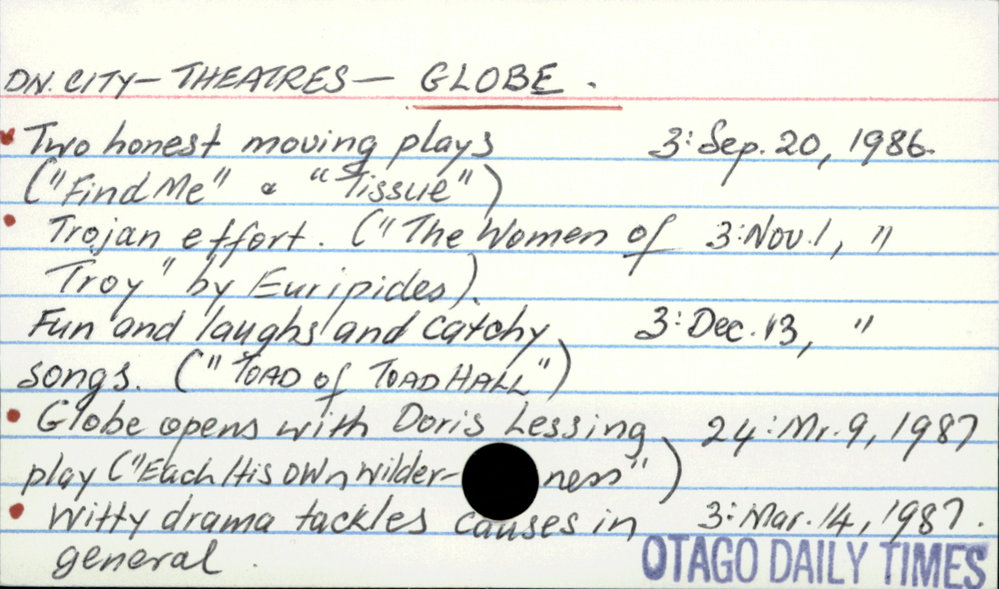 DN. CITY - THEATRES - GLOBE.
Two honest moving plays 3: Sep. 20, 1986.
("Find Me" & "Tissue")
Trojan effort. ("The Women of 3: Nov. 1, "
Troy" by Euripides).
Fun and laughs and catchy 3: Dec. 13, "
songs. ("TOAD of TOAD HALL")
Globe opens with Doris Lessing 24: Mr. 9, 1987
play ("Each His Own Wilder-ness")
Witty drama tackles causes in 3: Mar. 14, 1987.
general.
OTAGO DAILY TIMES